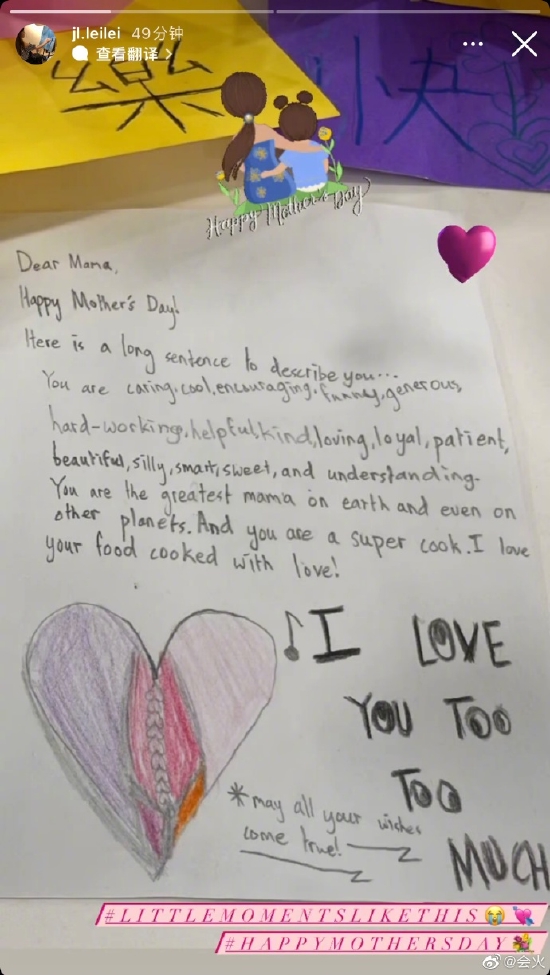 jl.leilei 49分钟
查看翻译 >
樂 快
Happy Mother's Day
Dear Mama,
Happy Mother's Day!
Here is a long sentence to describe you...
You are caring, cool, encouraging, funny, generous,
hard-working, helpful, kind, loving, loyal, patient,
beautiful, silly, smart, sweet, and understanding.
You are the greatest mama on earth and even on
other planets. And you are a super cook. I love
your food cooked with love!
I LOVE
YOU TOO
TOO
MUCH
*may all your wishes
come true!
#LITTLEMOMENTSLIKETHIS😭💘
#HAPPYMOTHERSDAY💐
@会火